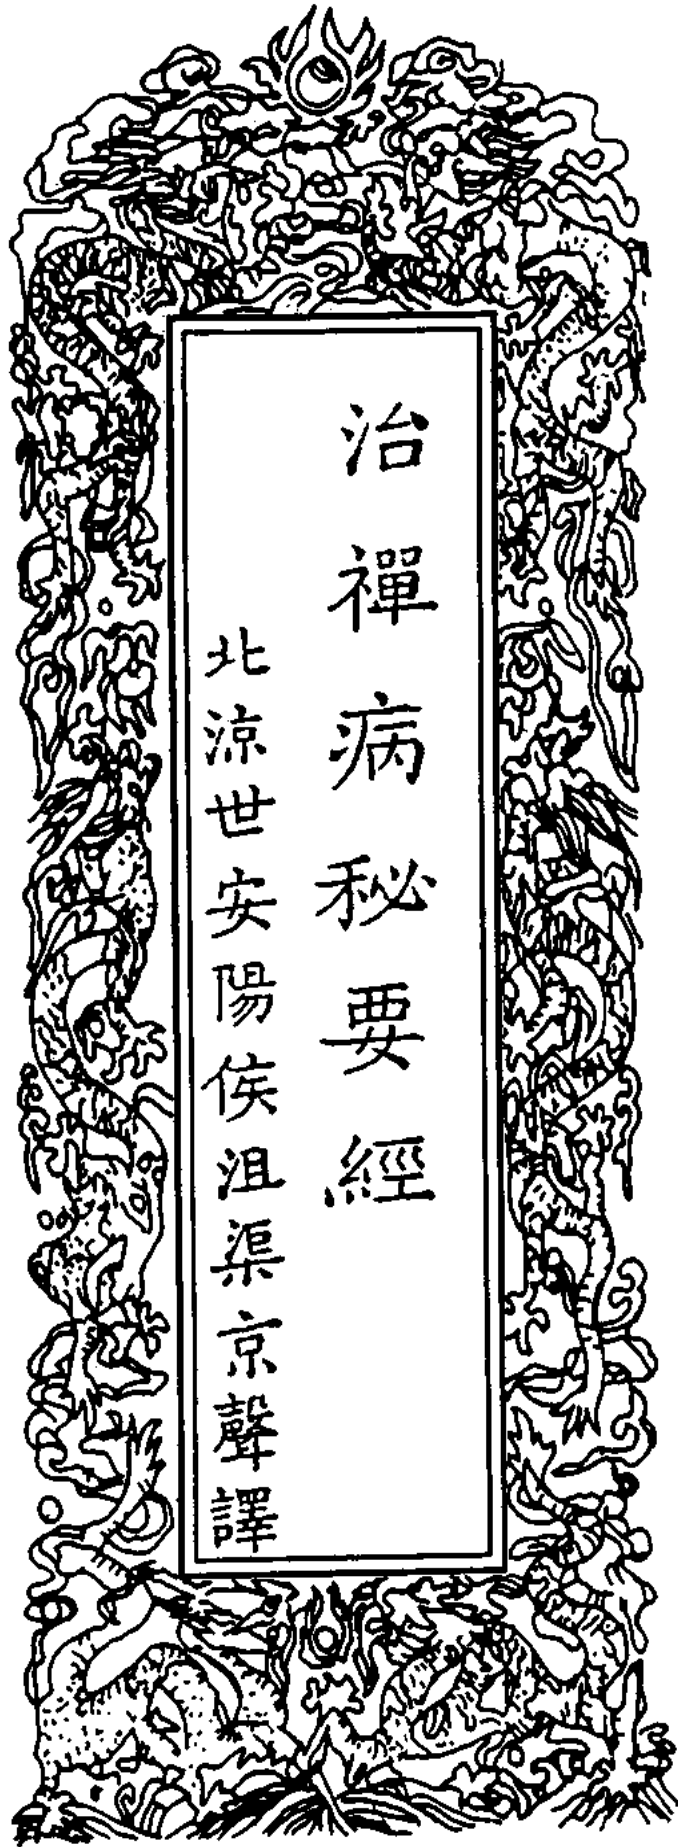 治禪病秘要經
北涼世安陽侯沮渠京聲譯